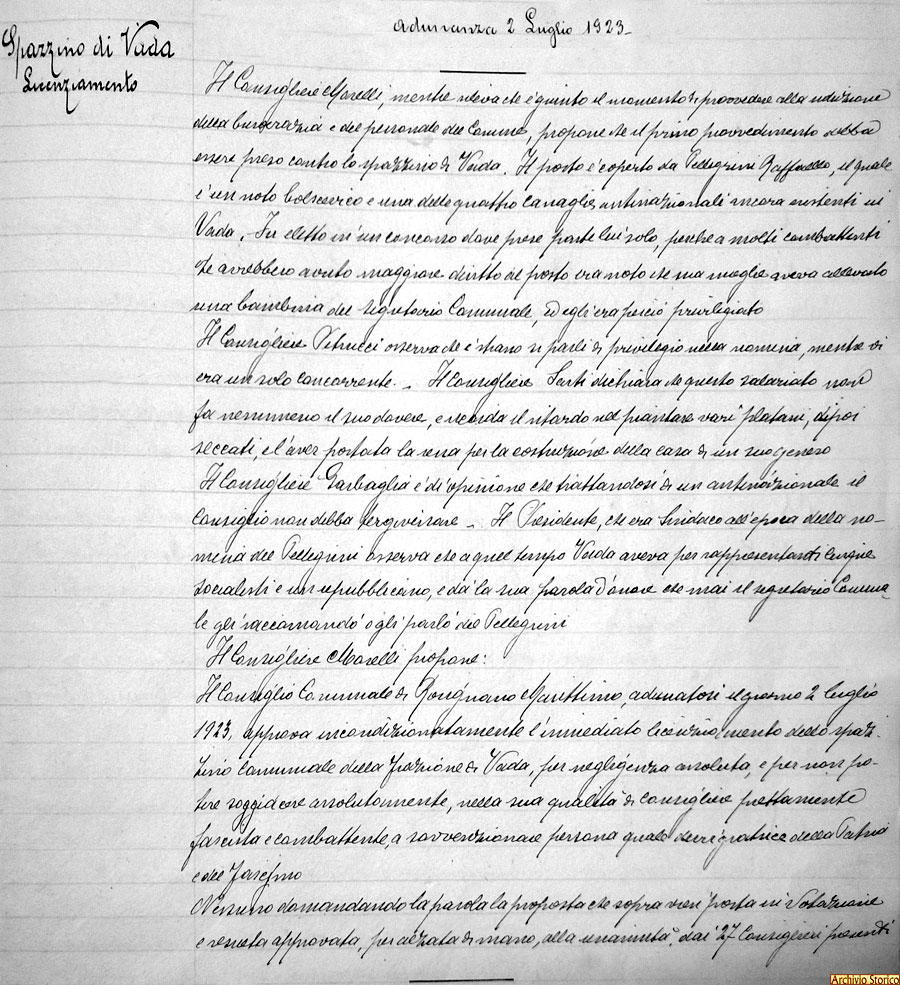 Adunanza 2 Luglio 1923-
Spazzino di Vada
Licenziamento
Il Consigliere Morelli, mentre rileva che è giunto il momento di provvedere alla riduzione
della burocrazia e del personale del Comune, propone che il primo provvedimento debba
essere preso contro lo spazzino di Vada. Il posto è coperto da Pellegrini Raffaello, il quale
è un noto bolscevico e una delle quattro canaglie antinazionali ancora esistenti in
Vada. Fu eletto in un concorso dove prese parte lui solo, perchè a molti combattenti
che avrebbero avuto maggiore diritto del posto era noto che sua moglie aveva allevato
una bambina del segretario Comunale, ed egli era perciò privilegiato
Il Consigliere Petrucci osserva che è strano si parli di privilegio nella nomina, mentre vi
era un solo concorrente. - Il Consigliere Santi dichiara che questo salariato non
fa nemmeno il suo dovere, e ricorda il ritardo nel piantare vari platani, dipoi
seccati, e l'aver portata la rena per la costruzione della casa di un suo genero
Il Consigliere Garbaglia è di opinione che trattandosi di un antinazionale il
Consiglio non debba tergiversare - Il Presidente, che era Sindaco all'epoca della no-
mina del Pellegrini osserva che a quel tempo Vada aveva per rappresentanti cinque
socialisti e un repubblicano, e dà la sua parola d'onore che mai il segretario Comuna-
le gli raccomandò o gli parlò del Pellegrini
Il Consigliere Morelli propone:
Il Consiglio Comunale di Rosignano Marittimo, adunatosi il giorno 2 luglio
1923, approva incondizionatamente l'immediato licenziamento dello spaz-
zino Comunale della frazione di Vada, per negligenza assoluta, e per non po-
tere soggiacere assolutamente, nella sua qualità di consigliere prettamente
fascista e combattente, a sovvenzionare persona quale denigratrice della Patria
e del Fascismo
Nessuno domandando la parola la proposta che sopra vien posta in votazione
e resulta approvata, per alzata di mano, alla unanimità dai 27 Consiglieri presenti
Archivio Storico